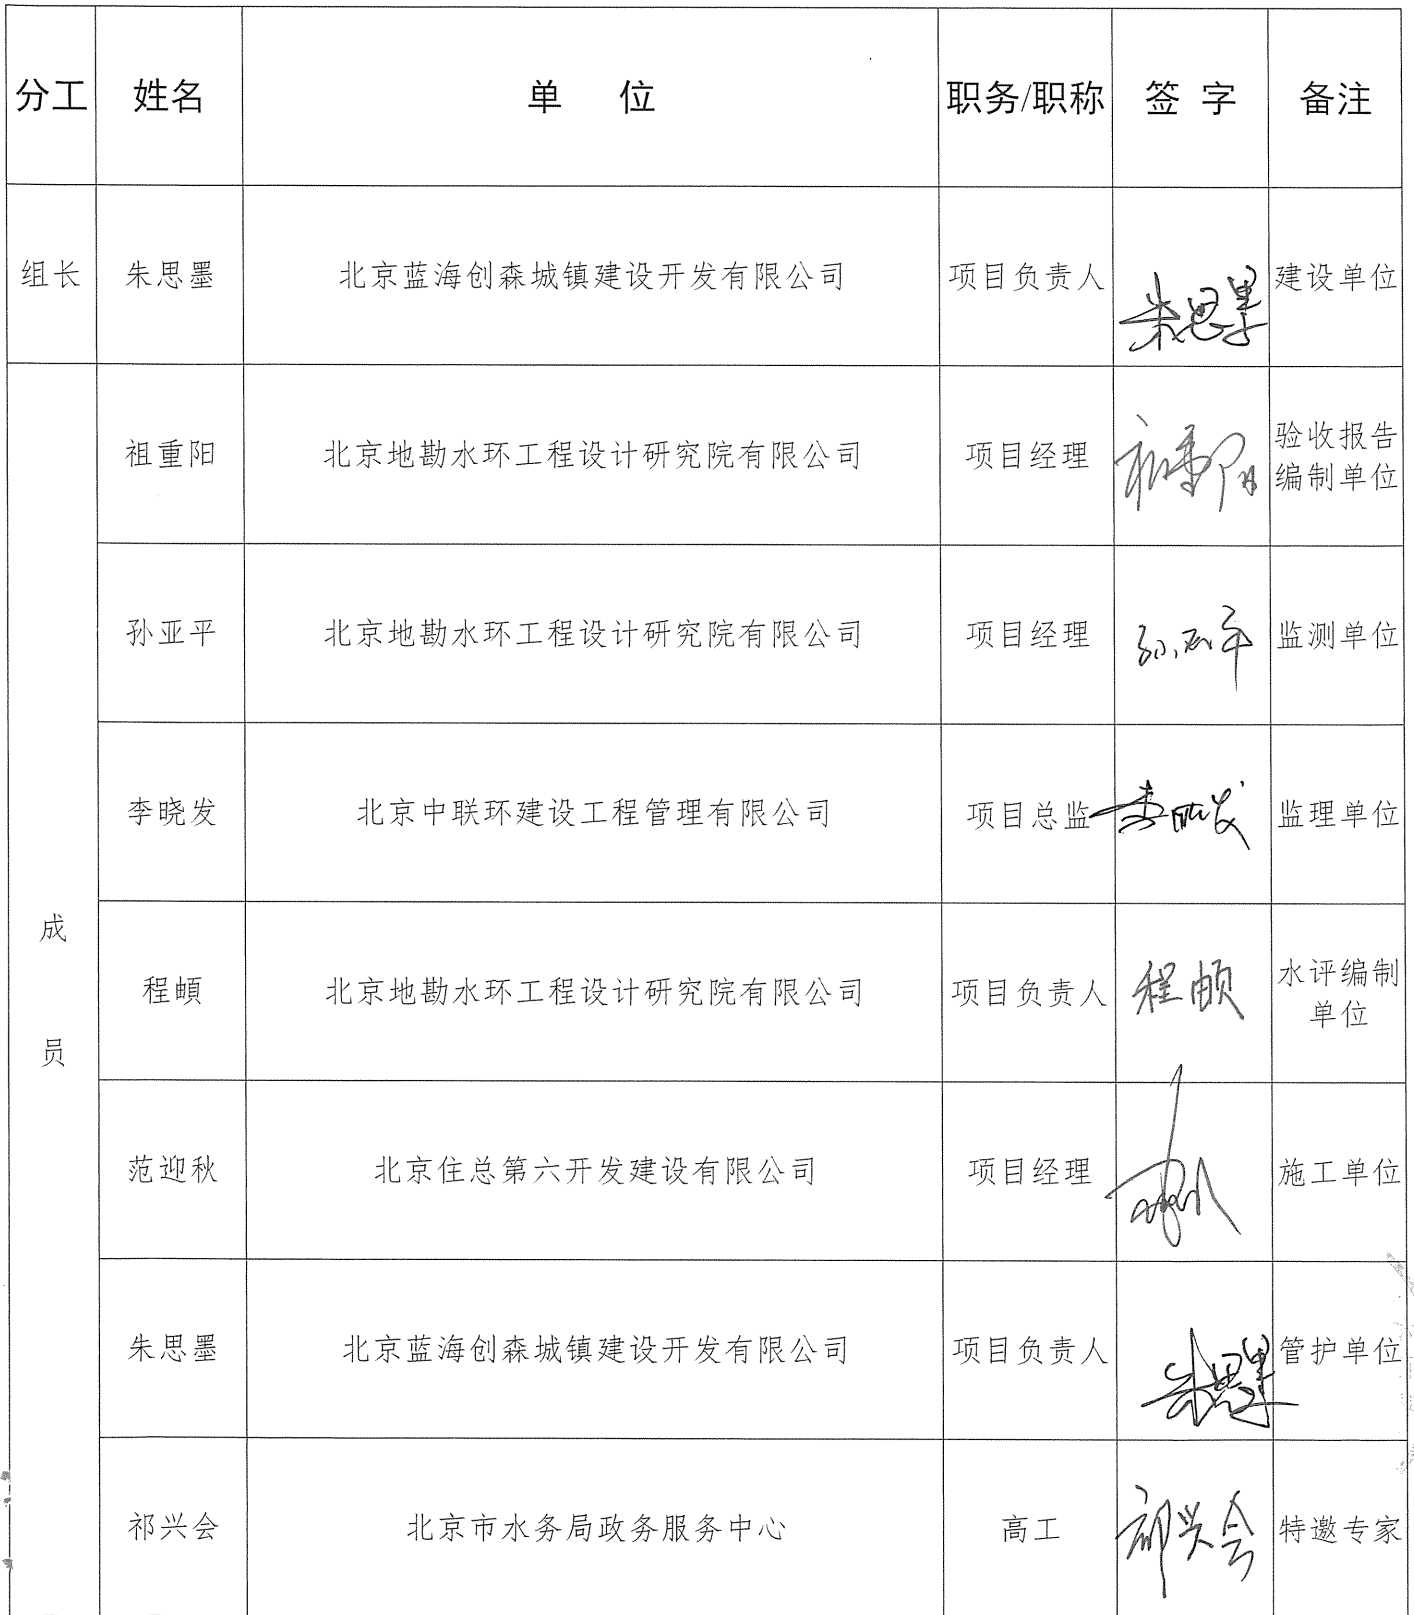 分工 姓名 单 位 职务/职称 签 字 备注
组长 朱思墨 北京蓝海创森城镇建设开发有限公司 项目负责人 朱思墨 建设单位
成员
祖重阳 北京地勘水环工程设计研究院有限公司 项目经理 祖重阳 验收报告
编制单位
孙亚平 北京地勘水环工程设计研究院有限公司 项目经理 孙亚平 监测单位
李晓发 北京中联环建设工程管理有限公司 项目总监 李晓发 监理单位
程頔 北京地勘水环工程设计研究院有限公司 项目负责人 程頔 水评编制
单位
范迎秋 北京住总第六开发建设有限公司 项目经理 施工单位
朱思墨 北京蓝海创森城镇建设开发有限公司 项目负责人 朱思墨 管护单位
祁兴会 北京市水务局政务服务中心 高工 祁兴会 特邀专家